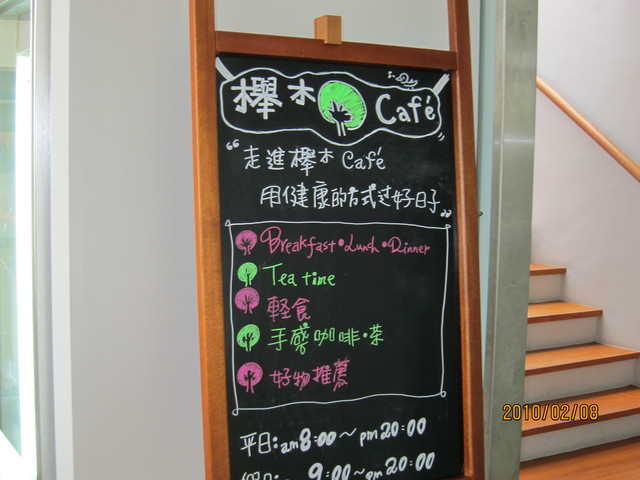 櫸木 Café
"走進櫸木 Café
用健康的方式过好日子"
Breakfast•Lunch•Dinner
Tea time
軽食
手感咖啡•茶
好物推薦
平日:am8:00～pm20:00
假日:am 9:00～pm 20:00
2010/02/08